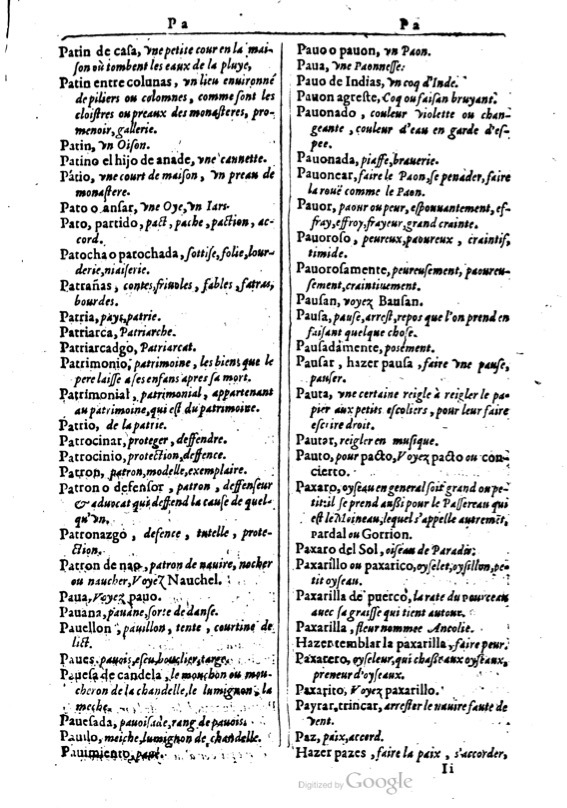 Pa
Patin de caſa, vne petite cour en la mai-
ſon où tombent les eaux de la pluye,
Patin entre colunas, vn lieu enuironné
de piliers ou colomnes, comme ſont les
cloiſtres ou preaux des monaſteres, pro-
menoir, gallerie.
Patin, vn Oiſon.
Patino el hijo de anade, vne cannette.
Pátio, vne court de maiſon, vn preau de
monaſtere.
Pato o anſar, vne Oye, vn Iars.
Pato, partido, pact, pache, paction, ac-
cord.
Patocha o patochada, ſottiſe, folie, lour-
derie, niaiſerie.
Patrañas, contes, friuoles, fables, fatras,
bourdes.
Patria, pays, patrie.
Patriarca, Patriarche.
Patriarcadgo, Patriarcat.
Patrimonio, patrimoine, les biens que le
pere laiſſe a ſes enfans apres ſa mort.
Patrimonial, patrimonial, appartenant
au patrimoine, qui eſt du patrimoine.
Patrio, de la patrie.
Patrocinar, proteger, deffendre.
Patrocinio, protection, deffence.
Patron, patron, modelle, exemplaire.
Patron o defenſor, patron, deffenſeur
& aduocat qui deffend la cauſe de quel-
qu'vn.
Patronazgo, defence, tutelle, prote-
ction.
Patron de nao, patron de nauire, nocher
ou naucher, Voyez Nauchel.
Paua, Voyez pauo.
Pauana, pauane, ſorte de danſe.
Pauellon, pauillon, tente, courtine de
lict.
Paues, pauois, eſcu, bouclier, targe.
Paueſa de candela, le mouchon ou mou-
cheron de la chandelle, le lumignon, la
meche.
Paueſada, pauoiſade, rang de pauois.
Pauilo, meiche, lumignon de chandelle.
Pauimiento, paué.
Pa
Pauo o pauon, vn Paon.
Paua, vne Paonneſſe.
Pauo de Indias, vn coq d'Inde.
Pauon agreſte, Coq ou faiſan bruyant.
Pauonado, couleur violette ou chan-
geante, couleur d'eau en garde d'eſ-
pee.
Pauonada, piaffe, brauerie.
Pauonear, faire le Paon, ſe penader, faire
la rouë comme le Paon.
Pauor, paour ou peur, eſpouuantement, eſ-
fray, effroy, frayeur, grand crainte.
Pauoroſo, peureux, paoureux, craintif,
timide.
Pauoroſamente, peureuſement, paoureu-
ſement, craintiuement.
Pauſan, voyez Bauſan.
Pauſa, pauſe, arreſt, repos que l'on prend en
faiſant quelque choſe.
Pauſadámente, poſément.
Pauſar, hazer pauſa, faire vne pauſe,
pauſer.
Pauta, vne certaine reigle à reigler le pa-
pier aux petits eſcoliers, pour leur faire
eſcrire droit.
Pautar, reigler en muſique.
Pauto, pour pacto, Voyez pacto ou con-
cierto.
Paxaro, oyſeau en general ſoit grand ou pe-
tit: il ſe prend auſſi pour le Paſſereau qui
eſt le Moineau, lequel s'appelle autremēt,
pardal ou Gorrion.
Paxaro del Sol, oiſeau de Paradis.
Paxarillo ou paxarico, oyſelet, oyſillon, pe-
tit oyſeau.
Paxarilla de puerco, la rate du pourceau
auec ſa graiſſe qui tient autour.
Paxarilla, fleur nommee Ancolie.
Hazer temblar la paxarilla, faire peur.
Paxarero, oyſeleur, qui chaſſe aux oyſeaux,
preneur d'oyſeaux.
Paxarito, Voyez paxarillo.
Payrar, trincar, arreſter le nauire faute de
vent.
Paz, paix, accord.
Hazer pazes, faire la paix, s'accorder,
Ii
Digitized by Google